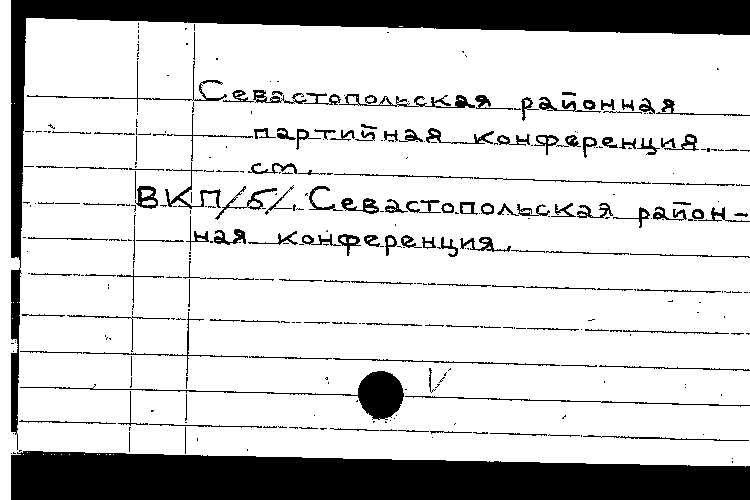 Севастопольская районная
партийная конференция.
см.
ВКП/б/. Севастопольская район-
ная конференция.
V